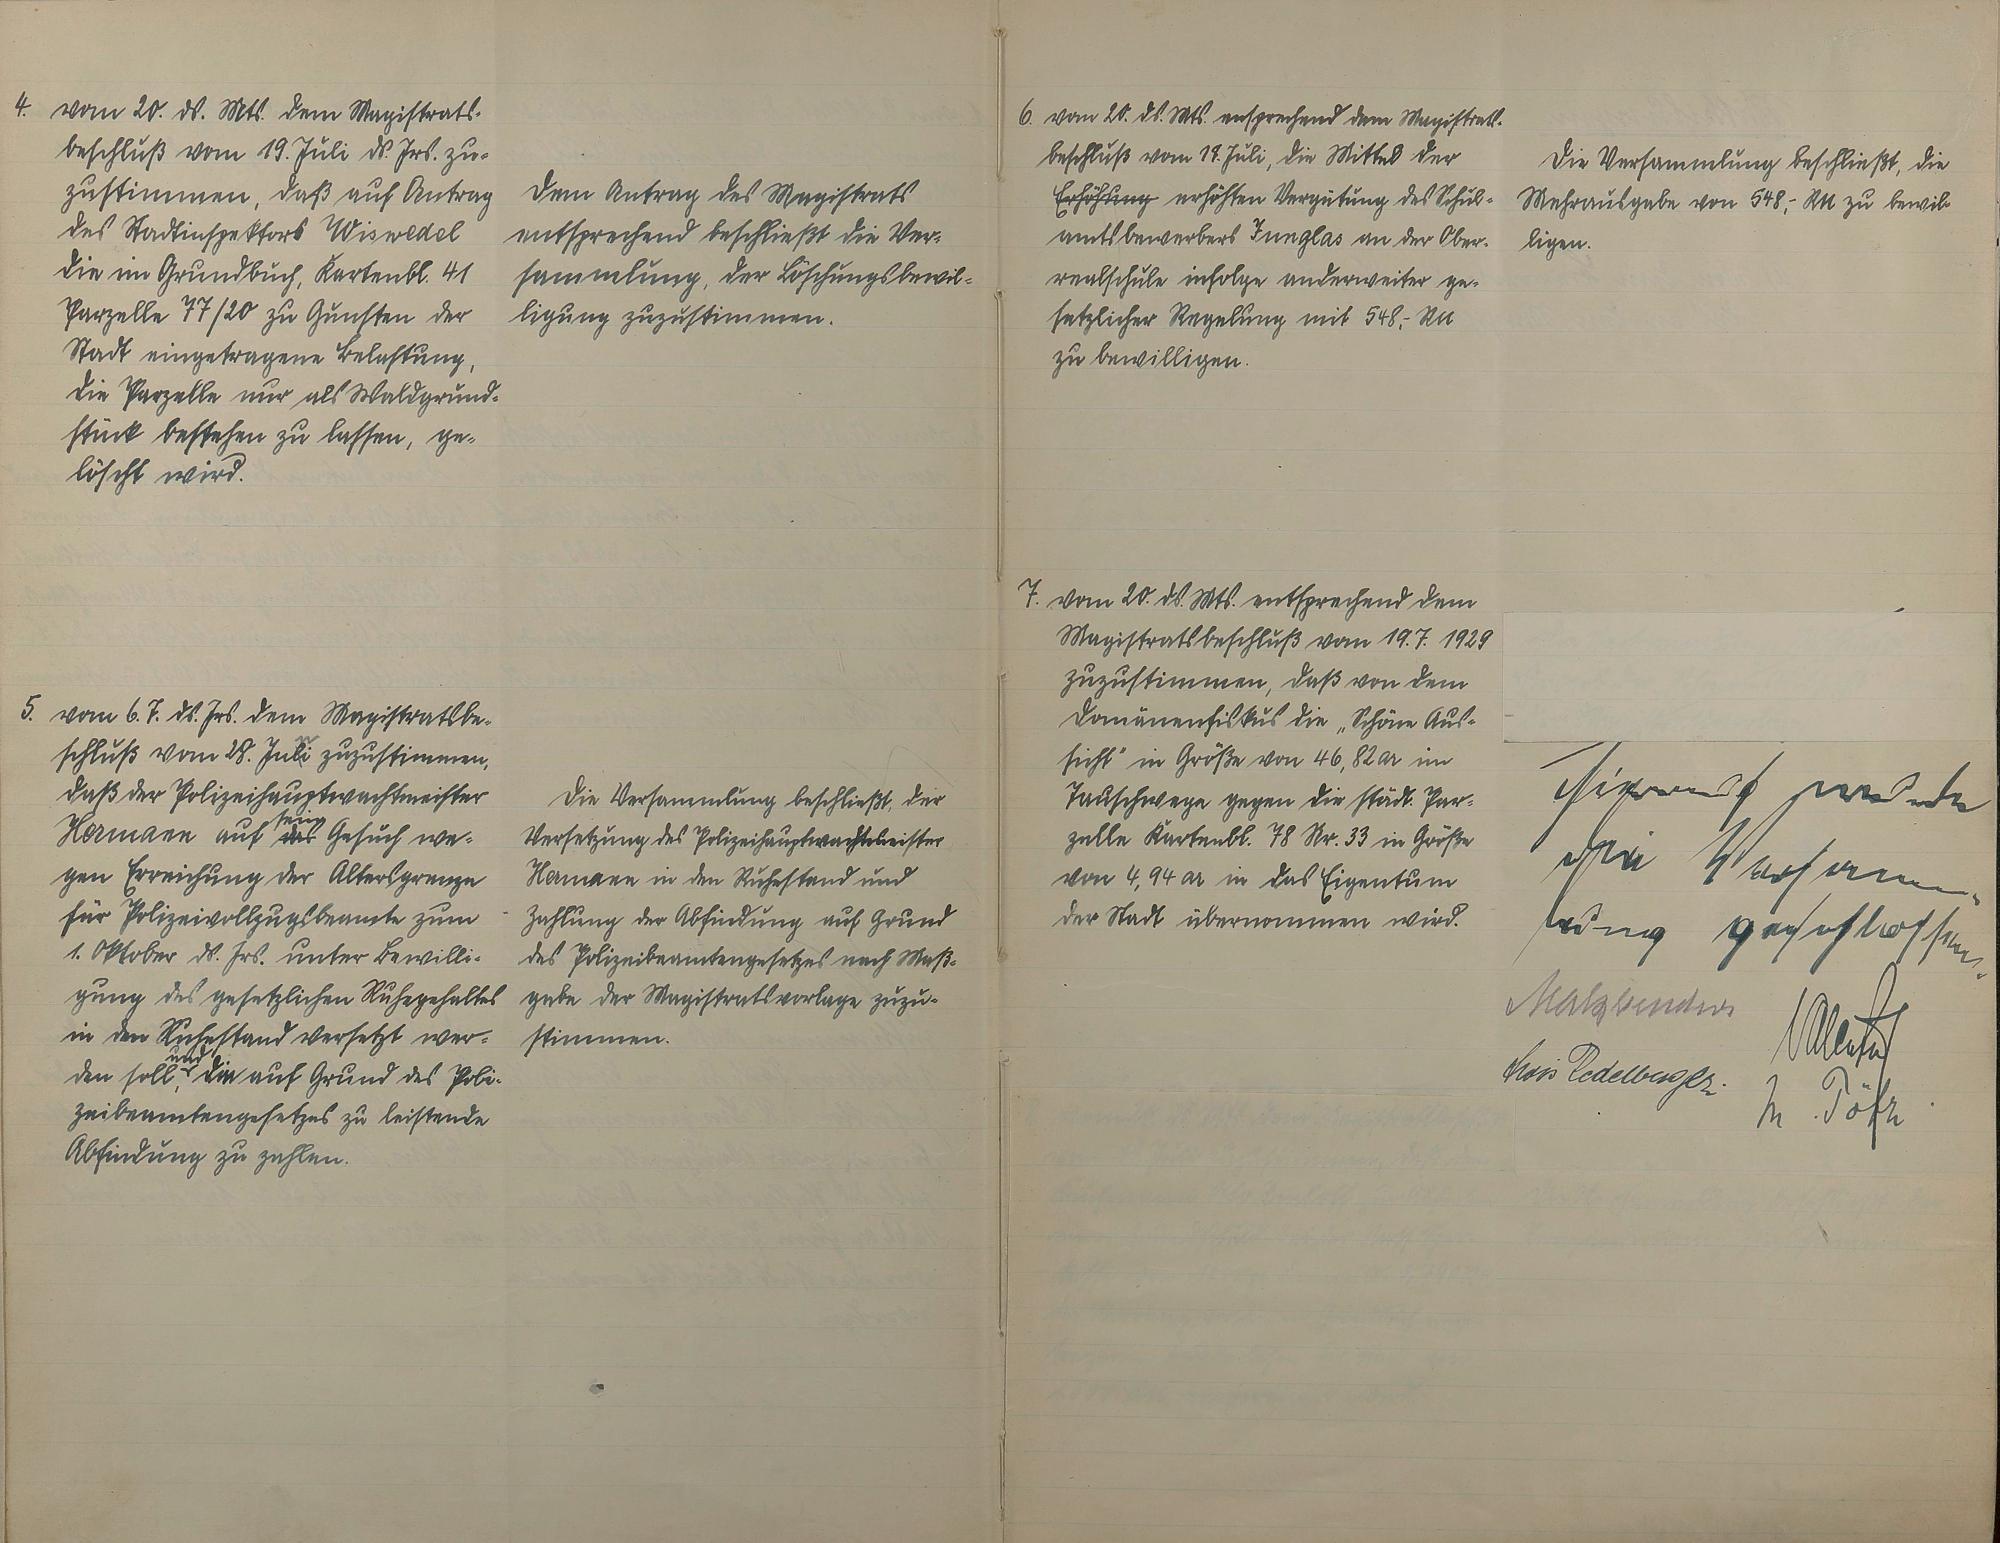 4. vom 20. ds. Mts. dem Magistrats-
beschluß vom 19. Juli ds. Jrs. zu-
zustimmen, daß auf Antrag
des Stadtinspektors Wiswedel
die im Grundbuch, Kartenbl. 41
Parzelle 77/20 zu Gunsten der
Stadt eingetragene Belastung,
die Parzelle nur als Waldgrund-
stück bestehen zu lassen, ge-
löscht wird.
Dem Antrag des Magistrats
entsprechend beschließt die Ver-
sammlung, der Löschungsbewil-
ligung zuzustimmen.
5. vom 6.7. ds. Jrs. dem Magistratsbe-
schluß vom 28. Juni zuzustimmen,
daß der Polizeihauptwachtmeister
Hermann auf sein Gesuch we-
gen Erreichung der Altersgrenze
für Polizeivollzugsbeamte zum
1. Oktober ds. Jrs. unter Bewilli-
gung des gesetzlichen Ruhegehaltes
in den Ruhestand versetzt wer-
den soll, und die auf Grund des Poli-
zeibeamtengesetzes zu leistende
Abfindung zu zahlen.
Die Versammlung beschließt, der
Versetzung des Polizeihauptwachtmeister
Hermann in den Ruhestand und
Zahlung der Abfindung auf Grund
des Polizeibeamtengesetzes nach Maß-
gabe der Magistratsvorlage zuzu-
stimmen.
6. vom 20. ds. Mts. ensprechend dem Magistrats-
beschluß vom 19. Juli, die Mittel der
Erhöhung erhöhten Vergütung des Schul-
amtsbewerbers Junglas an der Ober-
realschule infolge anderweiter ge-
setzlicher Regelung mit 548,- RM
zu bewilligen.
Die Versammlung beschließt, die
Mehrausgabe von 548,- RM zu bewil-
ligen.
7. vom 20. ds. Mts. entsprechend dem
Magistratsbeschluß vom 19.7. 1929
zuzustimmen, daß von dem
Domänenfiskus die „Schöne Aus-
sicht" in Größe von 46,82 ar im
Tauschwege gegen die städt. Par-
zelle Kartenbl. 78 Nr. 33 in Größe
von 4,94 ar in das Eigentum
der Stadt übernommen wird.
Hierauf wurde
die Versamm-
lung geschlossen.